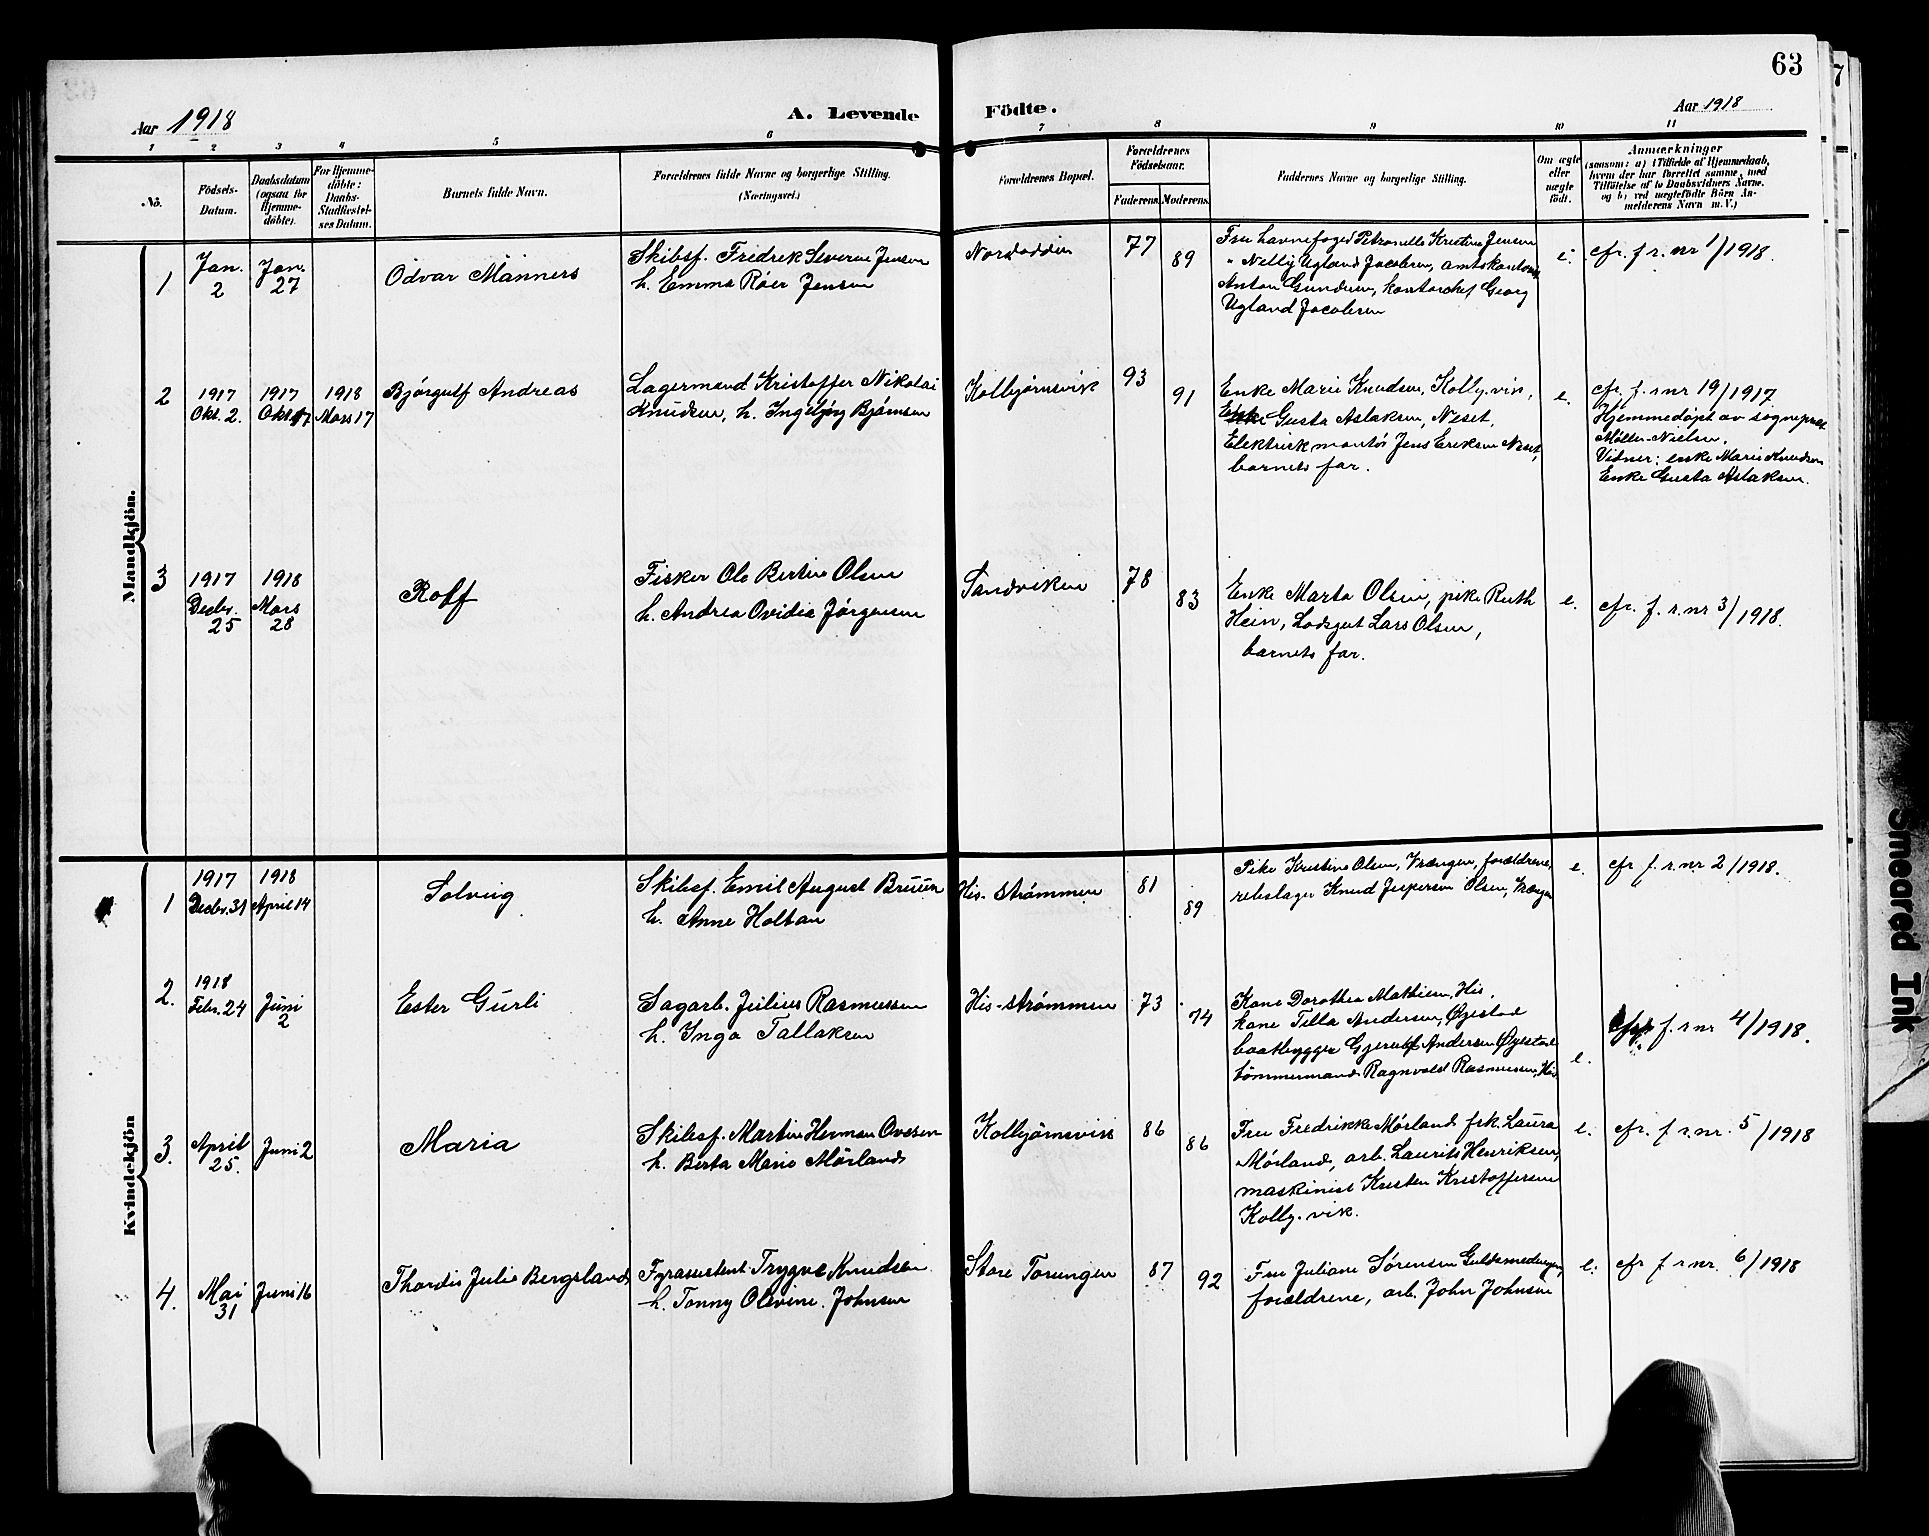 63
Aar 1918
A. Levende Födte.
Aar 1918
1 2 3 4 5 6 7 8 9 10 11
No.
Födsels-Datum.
Daabsdatum (ogsaa for Hjemme-döbte).
For Hjemme-döbte: Daabs-Stadfæstel-ses Datum.
Barnets fulde Navn.
Forældrenes fulde Navne og borgerlige Stilling. (Næringsvei.)
Forældrenes Bopæl.
Forældrenes Födselsaar.
Faderens. Moderens.
Faddernes Navne og borgerlige Stilling.
Om ægte eller uægte födt.
Anmærkninger
(saasom: a) i Tilfælde af Hjemmedaab,
hvem der har forrettet samme, med
Tilföielse af to Daabsvidners Navne.
og b) ved uægtefödte Börn An-
melderens Navn m. V.)
Mandkjön.
1 Jan. 2 Jan. 27 Odvar Manners
Skibsf. Fredrek Severin Jensen
h. Emma Röer Jensen
Nordodden 77 89
Fru havnefoged Petronelle Kristine Jensen
" Nelly Ugland Jacobsen, amtskontorist
Anton Gundersen, kontorchef Georg
Ugland Jacobsen
e. cfr. f. r. nr 1/1918.
2 1917 Okt. 2. 1917 Okt. 17 1918 Mars 17 Bjørgulf Andreas
Lagermand Kristoffer Nikolai
Knudsen, h. Ingebjørg Bjørnsen
Kolbjørnsvik 93 91
Enke Marie Knudsen, Kolbj.vik,
Enke Gusta Aslaksen, Neset.
Elektrisk montør Jens Eriksen Neset,
barnets far.
e. cfr. f. r nr 19/1917
Hjemmedøpt av sogneprest
Møller-Nielsen.
Vidner: enke Marie Knudsen
Enke Gusta Aslaksen.
3 1917 Decbr. 25 1918 Mars 28 Rolf
Fisker Ole Bertin Olsen
h. Andrea Ovidia Jørgensen
Sandviken 78 83
Enke Marta Olsen, pike Ruth
Hein, Lodsgut Lars Olsen,
barnets far.
e. cfr. f. r. nr 3/1918.
Kvindekjön
1 1917 Decbr. 31 1918 April 14 Solveig
Skibsf. Emil August Bruun
h. Anne Holtan
His-strømmen 81 89
Pike Kristine Olsen, Vrængen, forældrene,
rebslager Knud Jespersen Olsen, Vrængen
e. cfr f. r. nr 2/1918.
2. 1918 Febr. 24 Juni 2 Ester Gurli
Sagarb. Julius Rasmussen
h. Inga Tallaksen
His-strømmen 73 74
Kone Dorothea Mathisen, His,
kone Tilla Andersen, Øjestad
baatbygger Gjerulf Andersen Øyestad
tømmermand Ragnvald Rasmussen, His
e. cfr f. r nr 4/1918.
3. April 25. Juni 2 Maria
Skibsf. Martin Herman Ovesen
h. Berta Marie Mørland
Kolbjørnsvik 86 86
Fru Fredrikke Mørland frk. Laura
Mørland, arb. Laurits Henriksen,
maskinist Kristen Kristoffersen
Kolbj.vik.
e. cfr. f. r. nr. 5/1918
4. Mai 31 Juni 16 Thordis Julie Bergsland
Fyrassistent Trygve Knudsen
h. Tonny Olevine Johnsen
Store Torungen 87 92
Fru Juliane Sørensen Guldsmedengen,
forældrene, arb. John Johnsen
e. cfr f. r nr. 6/1918
Smeared Ink